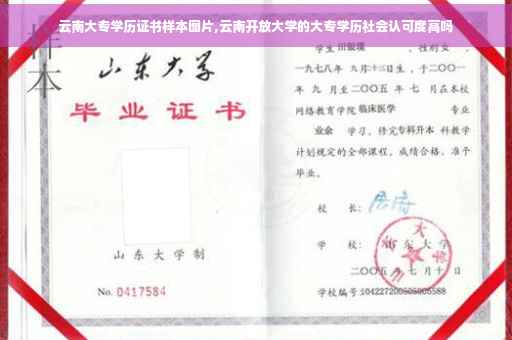 云南大专学历证书样本图片,云南开放大学的大专学历社会认可度高吗
样本
山东大学
毕业证书
山东大学制
No. 0417584
学生田银瑛 ,性别女 ,
一九七八年 九月十二日生,于二〇〇一
年 九 月至二〇〇五 年 七 月在本校
网络教育学院临床医学 专业
业余 学习,修完专科升本 科教学
计划规定的全部课程,成绩合格,准予
毕业。
校 长:
学 校: 山东大学
二〇〇五 年 七 月 十 日
学校编号:104227200505005588